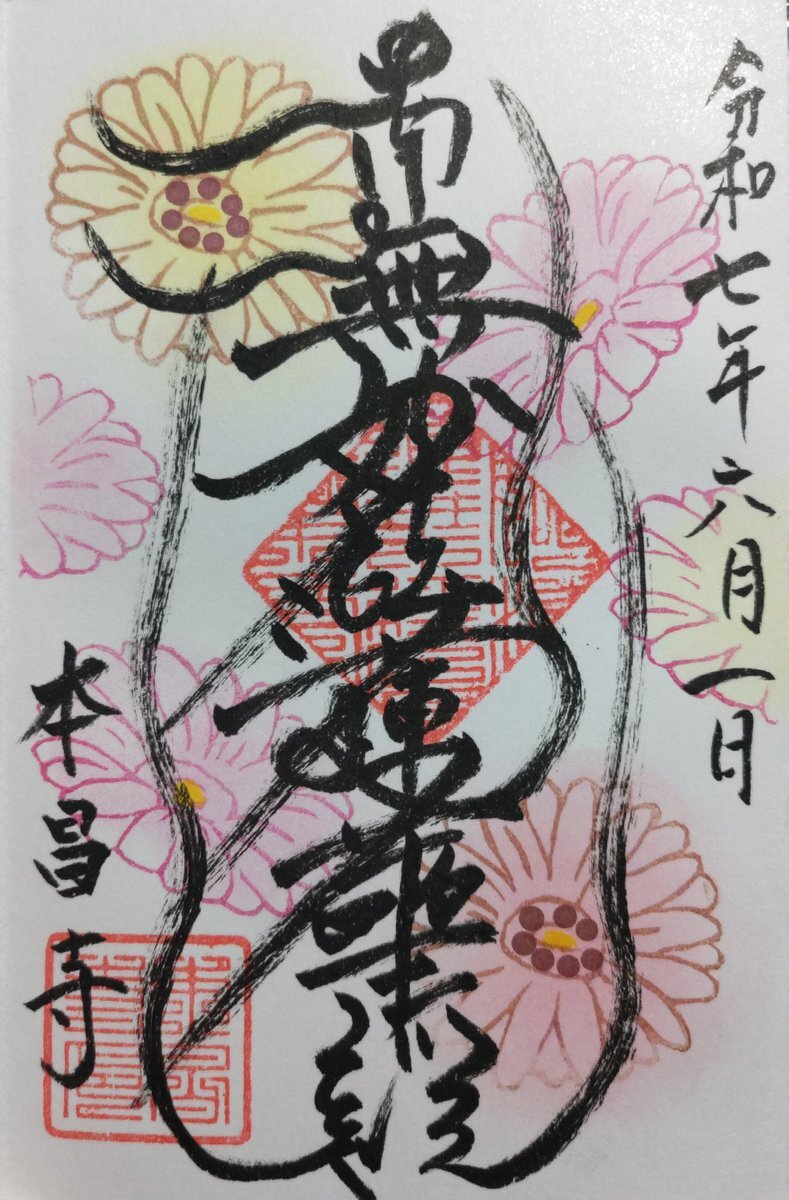 令和七年六月一日
南無妙法蓮華経
本昌寺